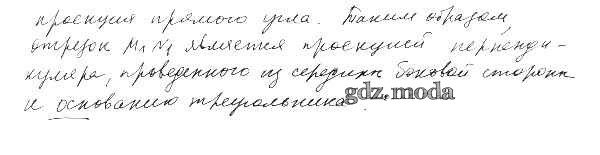 проекция прямого угла. Таким образом,
отрезок M₁N₁ является проекцией перпенди-
куляра, проведенного из середины боковой стороны
к основанию треугольника.
gdz.moda